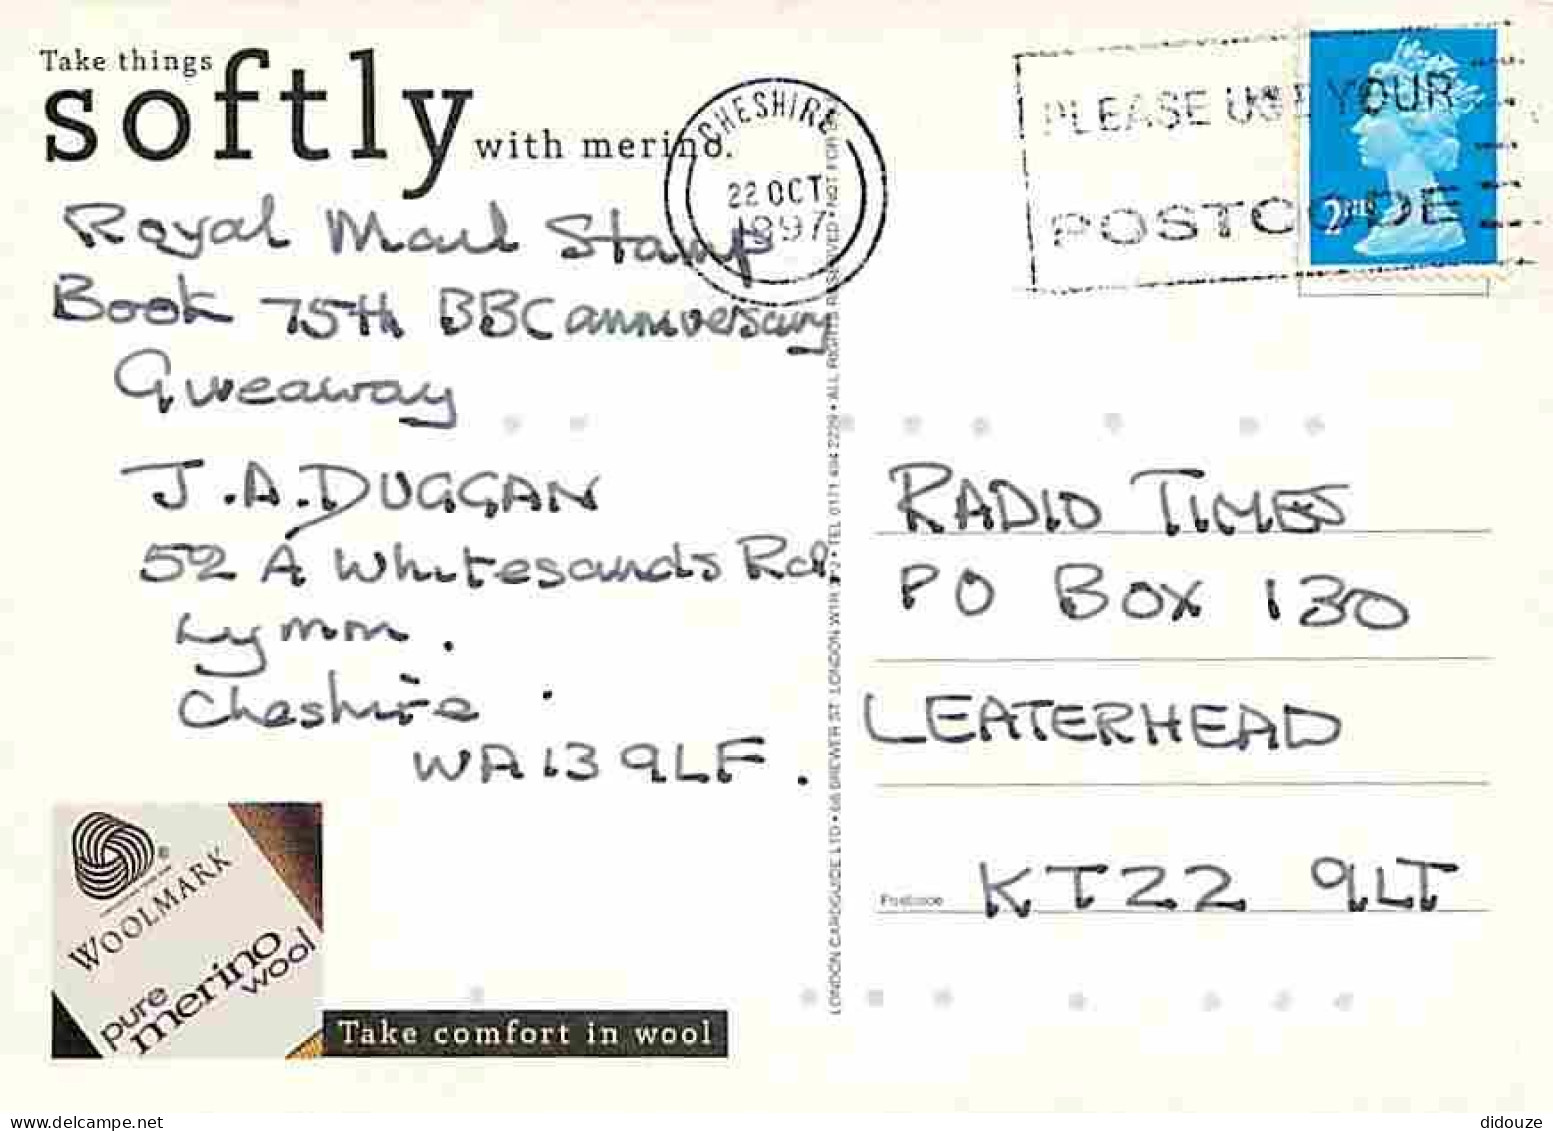 Take things
softly
with merino.
CHESHIRE
22 OCT
1997
PLEASE USE YOUR
POSTCODE
2ND
Royal Mail Stamp
Book 75th BBC anniversary
Giveaway
J.A. DUGGAN
52 A Whitesands Rd
Lymm.
Cheshire.
WA13 9LF.
RADIO TIMES
PO BOX 130
LEATERHEAD
Postcode KT22 9LT
LONDON CARDGUIDE LTD • 68 BREWER ST. LONDON W1R • TEL 0171 494 2229 • ALL RIGHTS RESERVED • NOT FOR
WOOLMARK
pure
merino
wool
Take comfort in wool
delcampe.net
didouze